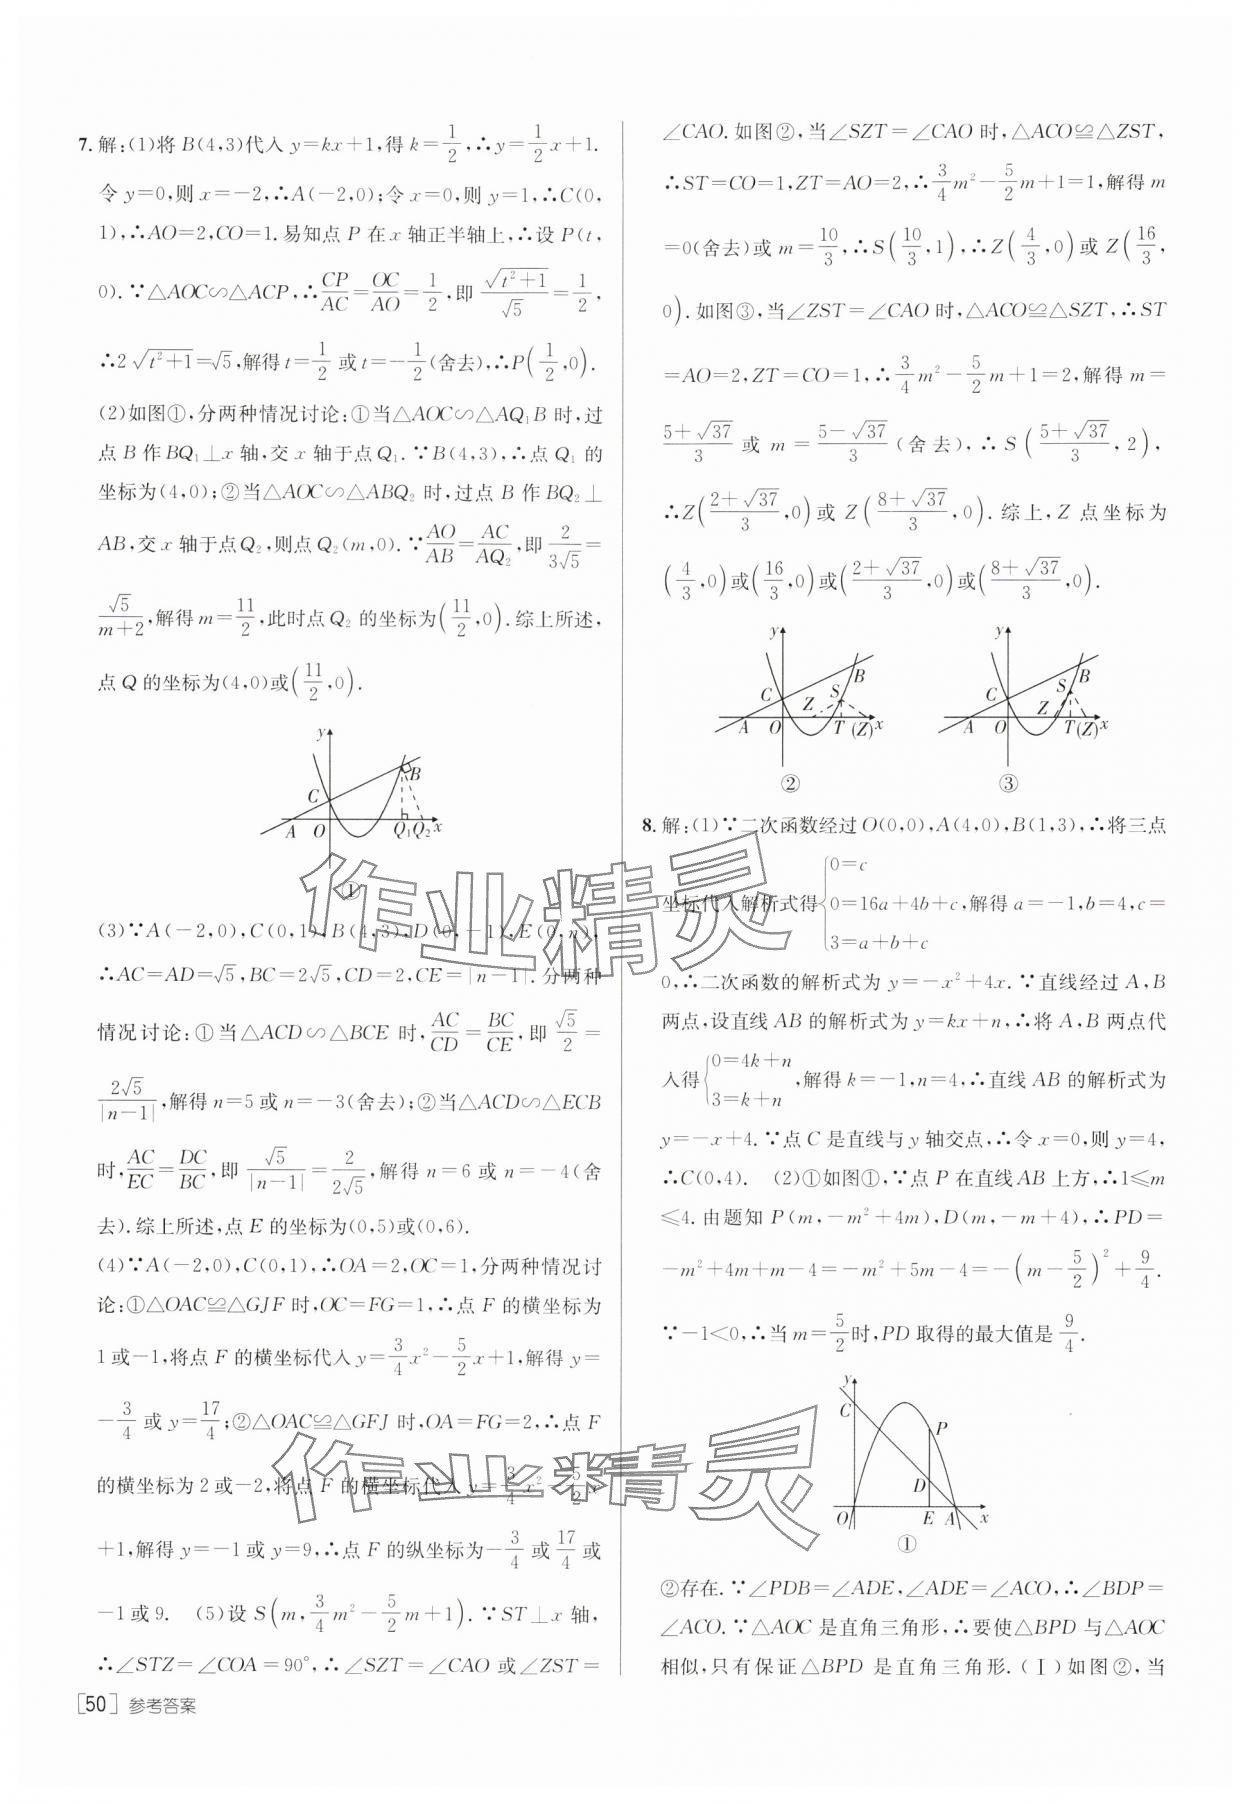 7. 解:(1)将 B(4,3)代入 y=kx+1,得 k=1/2,∴y=1/2x+1.
令 y=0,则 x=-2,∴A(-2,0);令 x=0,则 y=1,∴C(0,
1),∴AO=2,CO=1.易知点 P 在 x 轴正半轴上,∴设 P(t,
0).∵△AOC∽△ACP,∴CP/AC=OC/AO=1/2,即 √(t²+1)/√5=1/2,
∴2√(t²+1)=√5,解得 t=1/2 或 t=-1/2(舍去),∴P(1/2,0).
(2)如图①,分两种情况讨论:①当△AOC∽△AQ₁B 时,过
点 B 作 BQ₁⊥x 轴,交 x 轴于点 Q₁.∵B(4,3),∴点 Q₁ 的
坐标为(4,0);②当△AOC∽△ABQ₂ 时,过点 B 作 BQ₂⊥
AB,交 x 轴于点 Q₂,则点 Q₂(m,0).∵AO/AB=AC/AQ₂,即 2/3√5=
√5/m+2,解得 m=11/2,此时点 Q₂ 的坐标为(11/2,0).综上所述,
点 Q 的坐标为(4,0)或(11/2,0).
y
B
C
A O Q₁ Q₂ x
①
(3)∵A(-2,0),C(0,1),B(4,3),D(0,-1),E(0,n),
∴AC=AD=√5,BC=2√5,CD=2,CE=|n-1|.分两种
情况讨论:①当△ACD∽△BCE 时,AC/CD=BC/CE,即 √5/2=
2√5/|n-1|,解得 n=5 或 n=-3(舍去);②当△ACD∽△ECB
时,AC/EC=DC/BC,即 √5/|n-1|=2/2√5,解得 n=6 或 n=-4(舍
去).综上所述,点 E 的坐标为(0,5)或(0,6).
(4)∵A(-2,0),C(0,1),∴OA=2,OC=1,分两种情况讨
论:①△OAC≌△GJF 时,OC=FG=1,∴点 F 的横坐标为
1或-1,将点 F 的横坐标代入 y=3/4x²-5/2x+1,解得 y=
-3/4 或 y=17/4;②△OAC≌△GFJ 时,OA=FG=2,∴点 F
的横坐标为 2 或-2,将点 F 的横坐标代入 y=3/4x²-5/2x
+1,解得 y=-1 或 y=9,∴点 F 的纵坐标为-3/4 或 17/4 或
-1 或 9. (5)设 S(m,3/4m²-5/2m+1).∵ST⊥x 轴,
∴∠STZ=∠COA=90°,∴∠SZT=∠CAO 或∠ZST=
[50] 参考答案
∠CAO.如图②,当∠SZT=∠CAO 时,△ACO≌△ZST,
∴ST=CO=1,ZT=AO=2,∴3/4m²-5/2m+1=1,解得 m
=0(舍去)或 m=10/3,∴S(10/3,1),∴Z(4/3,0)或 Z(16/3,
0).如图③,当∠ZST=∠CAO 时,△ACO≌△SZT,∴ST
=AO=2,ZT=CO=1,∴3/4m²-5/2m+1=2,解得 m=
5+√37/3 或 m=5-√37/3(舍去),∴S(5+√37/3,2),
∴Z(2+√37/3,0)或 Z(8+√37/3,0).综上,Z 点坐标为
(4/3,0)或(16/3,0)或(2+√37/3,0)或(8+√37/3,0).
y
B
C S
Z
A O T (Z) x
②
y
B
C S
Z
A O T(Z) x
③
8. 解:(1)∵二次函数经过 O(0,0),A(4,0),B(1,3),∴将三点
坐标代入解析式得{0=c 0=16a+4b+c 3=a+b+c,解得 a=-1,b=4,c=
0,∴二次函数的解析式为 y=-x²+4x.∵直线经过 A,B
两点,设直线 AB 的解析式为 y=kx+n,∴将 A,B 两点代
入得{0=4k+n 3=k+n,解得 k=-1,n=4,∴直线 AB 的解析式为
y=-x+4.∵点 C 是直线与 y 轴交点,∴令 x=0,则 y=4,
∴C(0,4). (2)①如图①,∵点 P 在直线 AB 上方,∴1≤m
≤4.由题知 P(m,-m²+4m),D(m,-m+4),∴PD=
-m²+4m+m-4=-m²+5m-4=-(m-5/2)²+9/4.
∵-1<0,∴当 m=5/2时,PD 取得的最大值是 9/4.
y
C
P
D
O E A x
①
②存在.∵∠PDB=∠ADE,∠ADE=∠ACO,∴∠BDP=
∠ACO.∵△AOC 是直角三角形,∴要使△BPD 与△AOC
相似,只有保证△BPD 是直角三角形.(Ⅰ)如图②,当
作业精灵
作业精灵